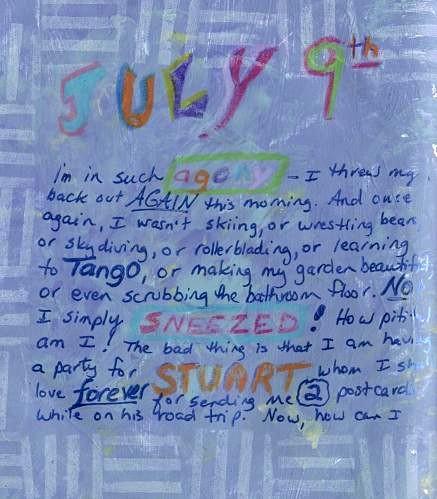 JULY 9th
I'm in such agony - I threw my
back out AGAIN this morning. And once
again, I wasn't skiing, or wrestling bears
or skydiving, or rollerblading, or learning
to Tango, or making my garden beautif
or even scrubbing the bathroom floor. NO
I simply SNEEZED! How piti
am I! The bad thing is that I am havi
a party for STUART whom I sh
love forever for sending me 2 postcard
while on his road trip. Now, how can I